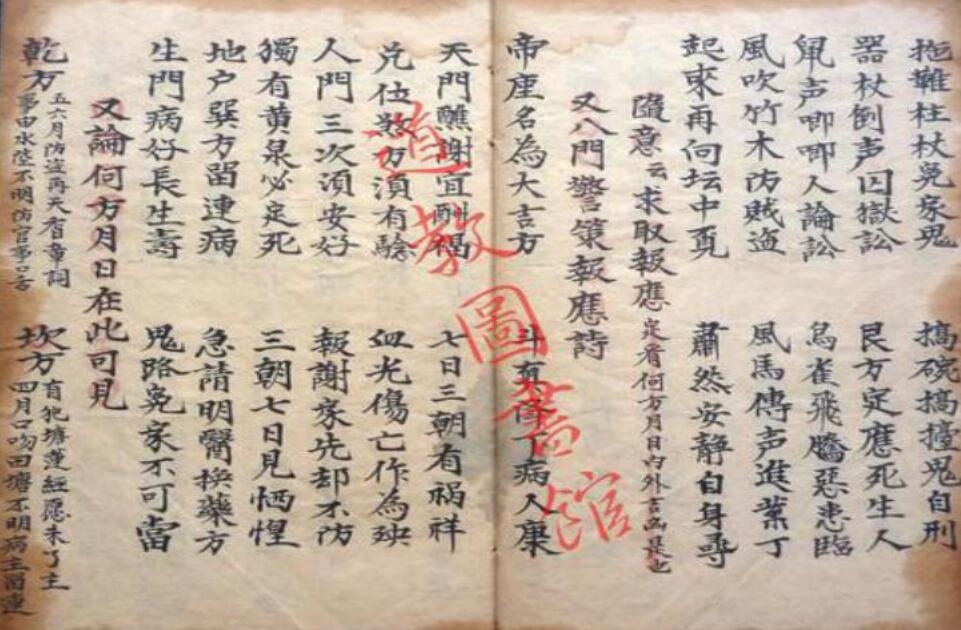 拖難柱杖冤家鬼　搞碗搞擡鬼自刑
器杖倒声囚獄訟　艮方定應死生人
鼠声唧唧人論訟　烏雀飛騰惡患臨
風吹竹木防賊盗　風馬傳声進業丁
起來再向坛中覔　肅然安静自身尋
隨意云求取報應定看何方月日内外吉凶是也
又八門警策報應詩
帝座名為大吉方　斗有降下病人康
天門醮謝宜酧　七日三朝有祸祥
兑位方湏有驗　血光傷亡作為殃
人門三次湏安好　報謝家先却不防
獨有黄泉必定死　三朝七日見恓惶
地户巽方留連病　急請明醫换藥方
生門病好長生壽　鬼路冤家不可當
又論何方月日在此可見
乾方
五六月防盗再天香章詞
事由水陸不明防官事口舌
坎方
有犯塘蓮經愿未了主
四月口吻田塘不明病主留連
道教圖書館